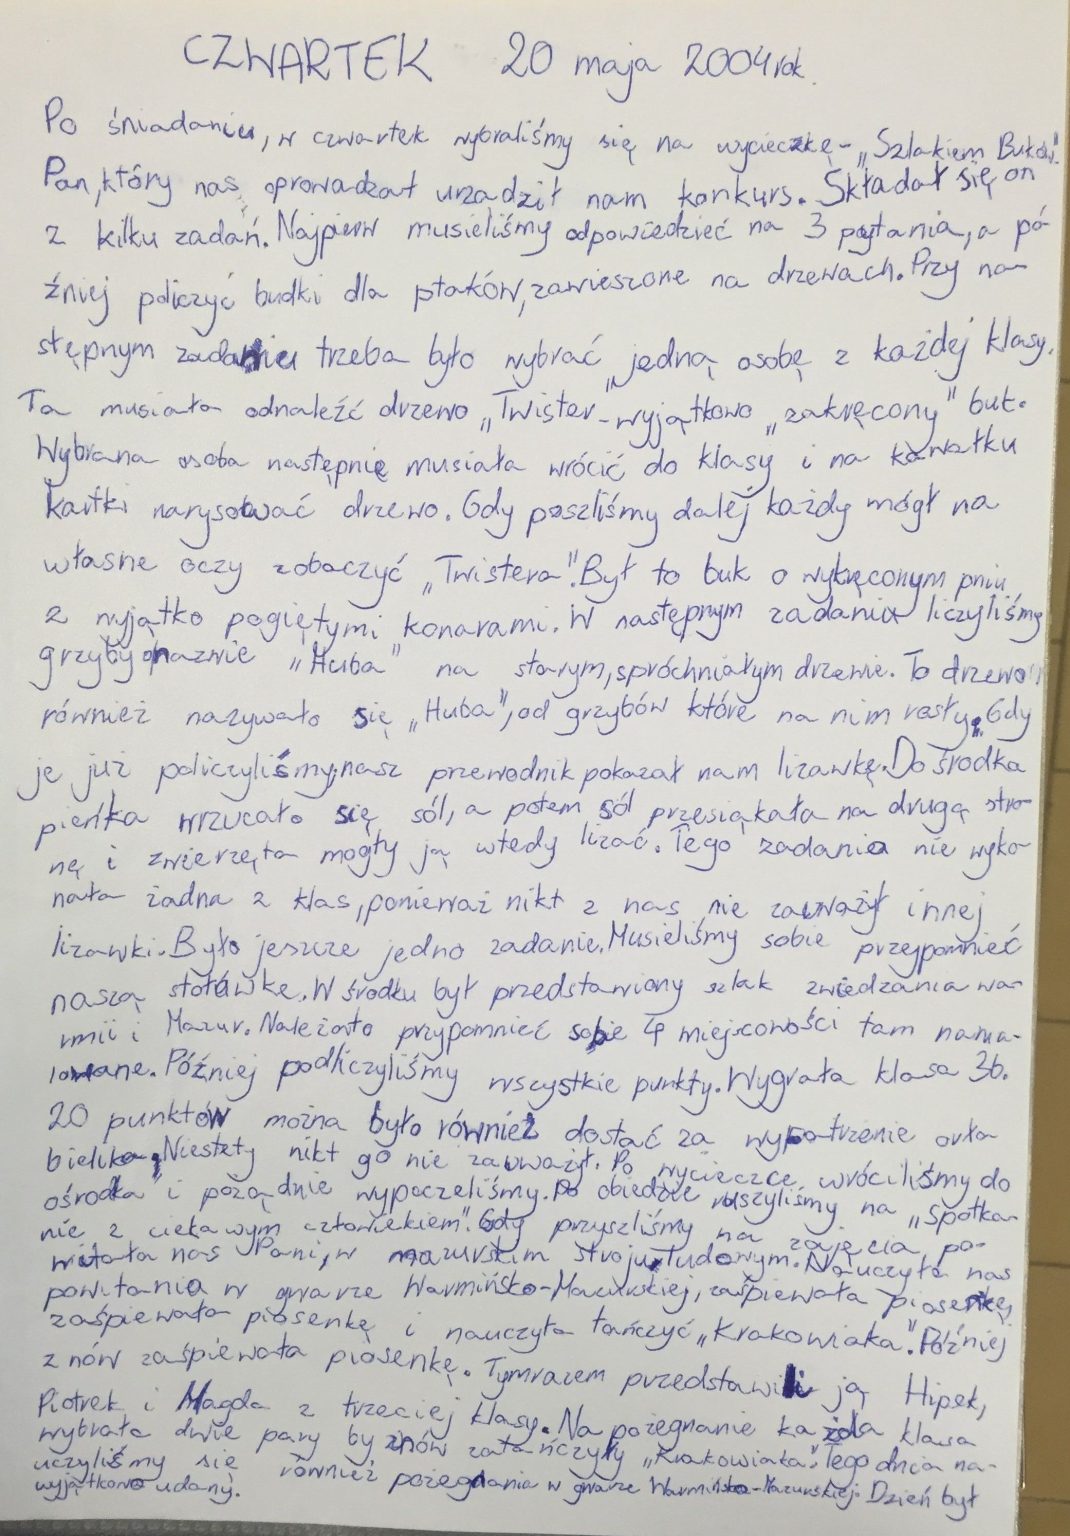 CZWARTEK 20 maja 2004 rok.
Po śniadaniu, w czwartek wybraliśmy się na wycieczkę - „Szlakiem Buków".
Pan, który nas oprowadzał urządził nam konkurs. Składał się on
z kilku zadań. Najpierw musieliśmy odpowiedzieć na 3 pytania, a pó-
źniej policzyć budki dla ptaków, zawieszone na drzewach. Przy na-
stępnym zadaniu trzeba było wybrać jedną osobę z każdej klasy.
Ta musiała odnaleźć drzewo „Twister" - wyjątkowo „zakręcony" buk.
Wybrana osoba następnię musiała wrócić do klasy i na kawałku
kartki narysować drzewo. Gdy poszliśmy dalej każdy mógł na
własne oczy zobaczyć „Twistera". Był to buk o wykręconym pniu
z wyjątko pogiętymi konarami. W następnym zadaniu liczyliśmy
grzyby o nazwie „Huba" na starym, spróchniałym drzewie. To drzewo
również nazywało się „Huba", od grzybów które na nim rosły. Gdy
je już policzyliśmy, nasz przewodnik pokazał nam lizawkę. Do środka
pieńka wrzucało się sól, a potem sól przesiąkała na drugą stro-
nę i zwierzęta mogły ją wtedy lizać. Tego zadania nie wyko-
nała żadna z klas, ponieważ nikt z nas nie zauważył innej
lizawki. Było jeszcze jedno zadanie. Musieliśmy sobie przypomnieć
naszą stołówkę. W środku był przedstawiony szlak zwiedzania wa-
rmii i Mazur. Należało przypomnieć sobie 4 miejscowości tam nama-
lowane. Później podliczyliśmy wszystkie punkty. Wygrała klasa 3b.
20 punktów można było również dostać za wypatrzenie orła
bielika. Niestety nikt go nie zauważył. Po wycieczce wróciliśmy do
ośrodka i porządnie wypoczeliśmy. Po obiedzie ruszyliśmy na „Spotka-
nie z ciekawym człowiekiem". Gdy przyszliśmy na zajęcia, po-
witała nas Pani, w mazurskim stroju ludowym. Nauczyła nas
powitania w gwarze Warmińsko-Mazurskiej, zaśpiewała piosenkę,
zaśpiewała piosenkę i nauczyła tańczyć „Krakowiaka". Później
znów zaśpiewała piosenkę. Tymrazem przedstawili ją Hipek,
Piotrek i Magda z trzeciej klasy. Na pożegnanie każda klasa
wybrała dwie pary by znów zatańczyły „Krakowiaka". Tego dnia na-
uczyliśmy się również pożegnania w gwarze Warmińsko-Mazurskiej. Dzień był
wyjątkowo udany.